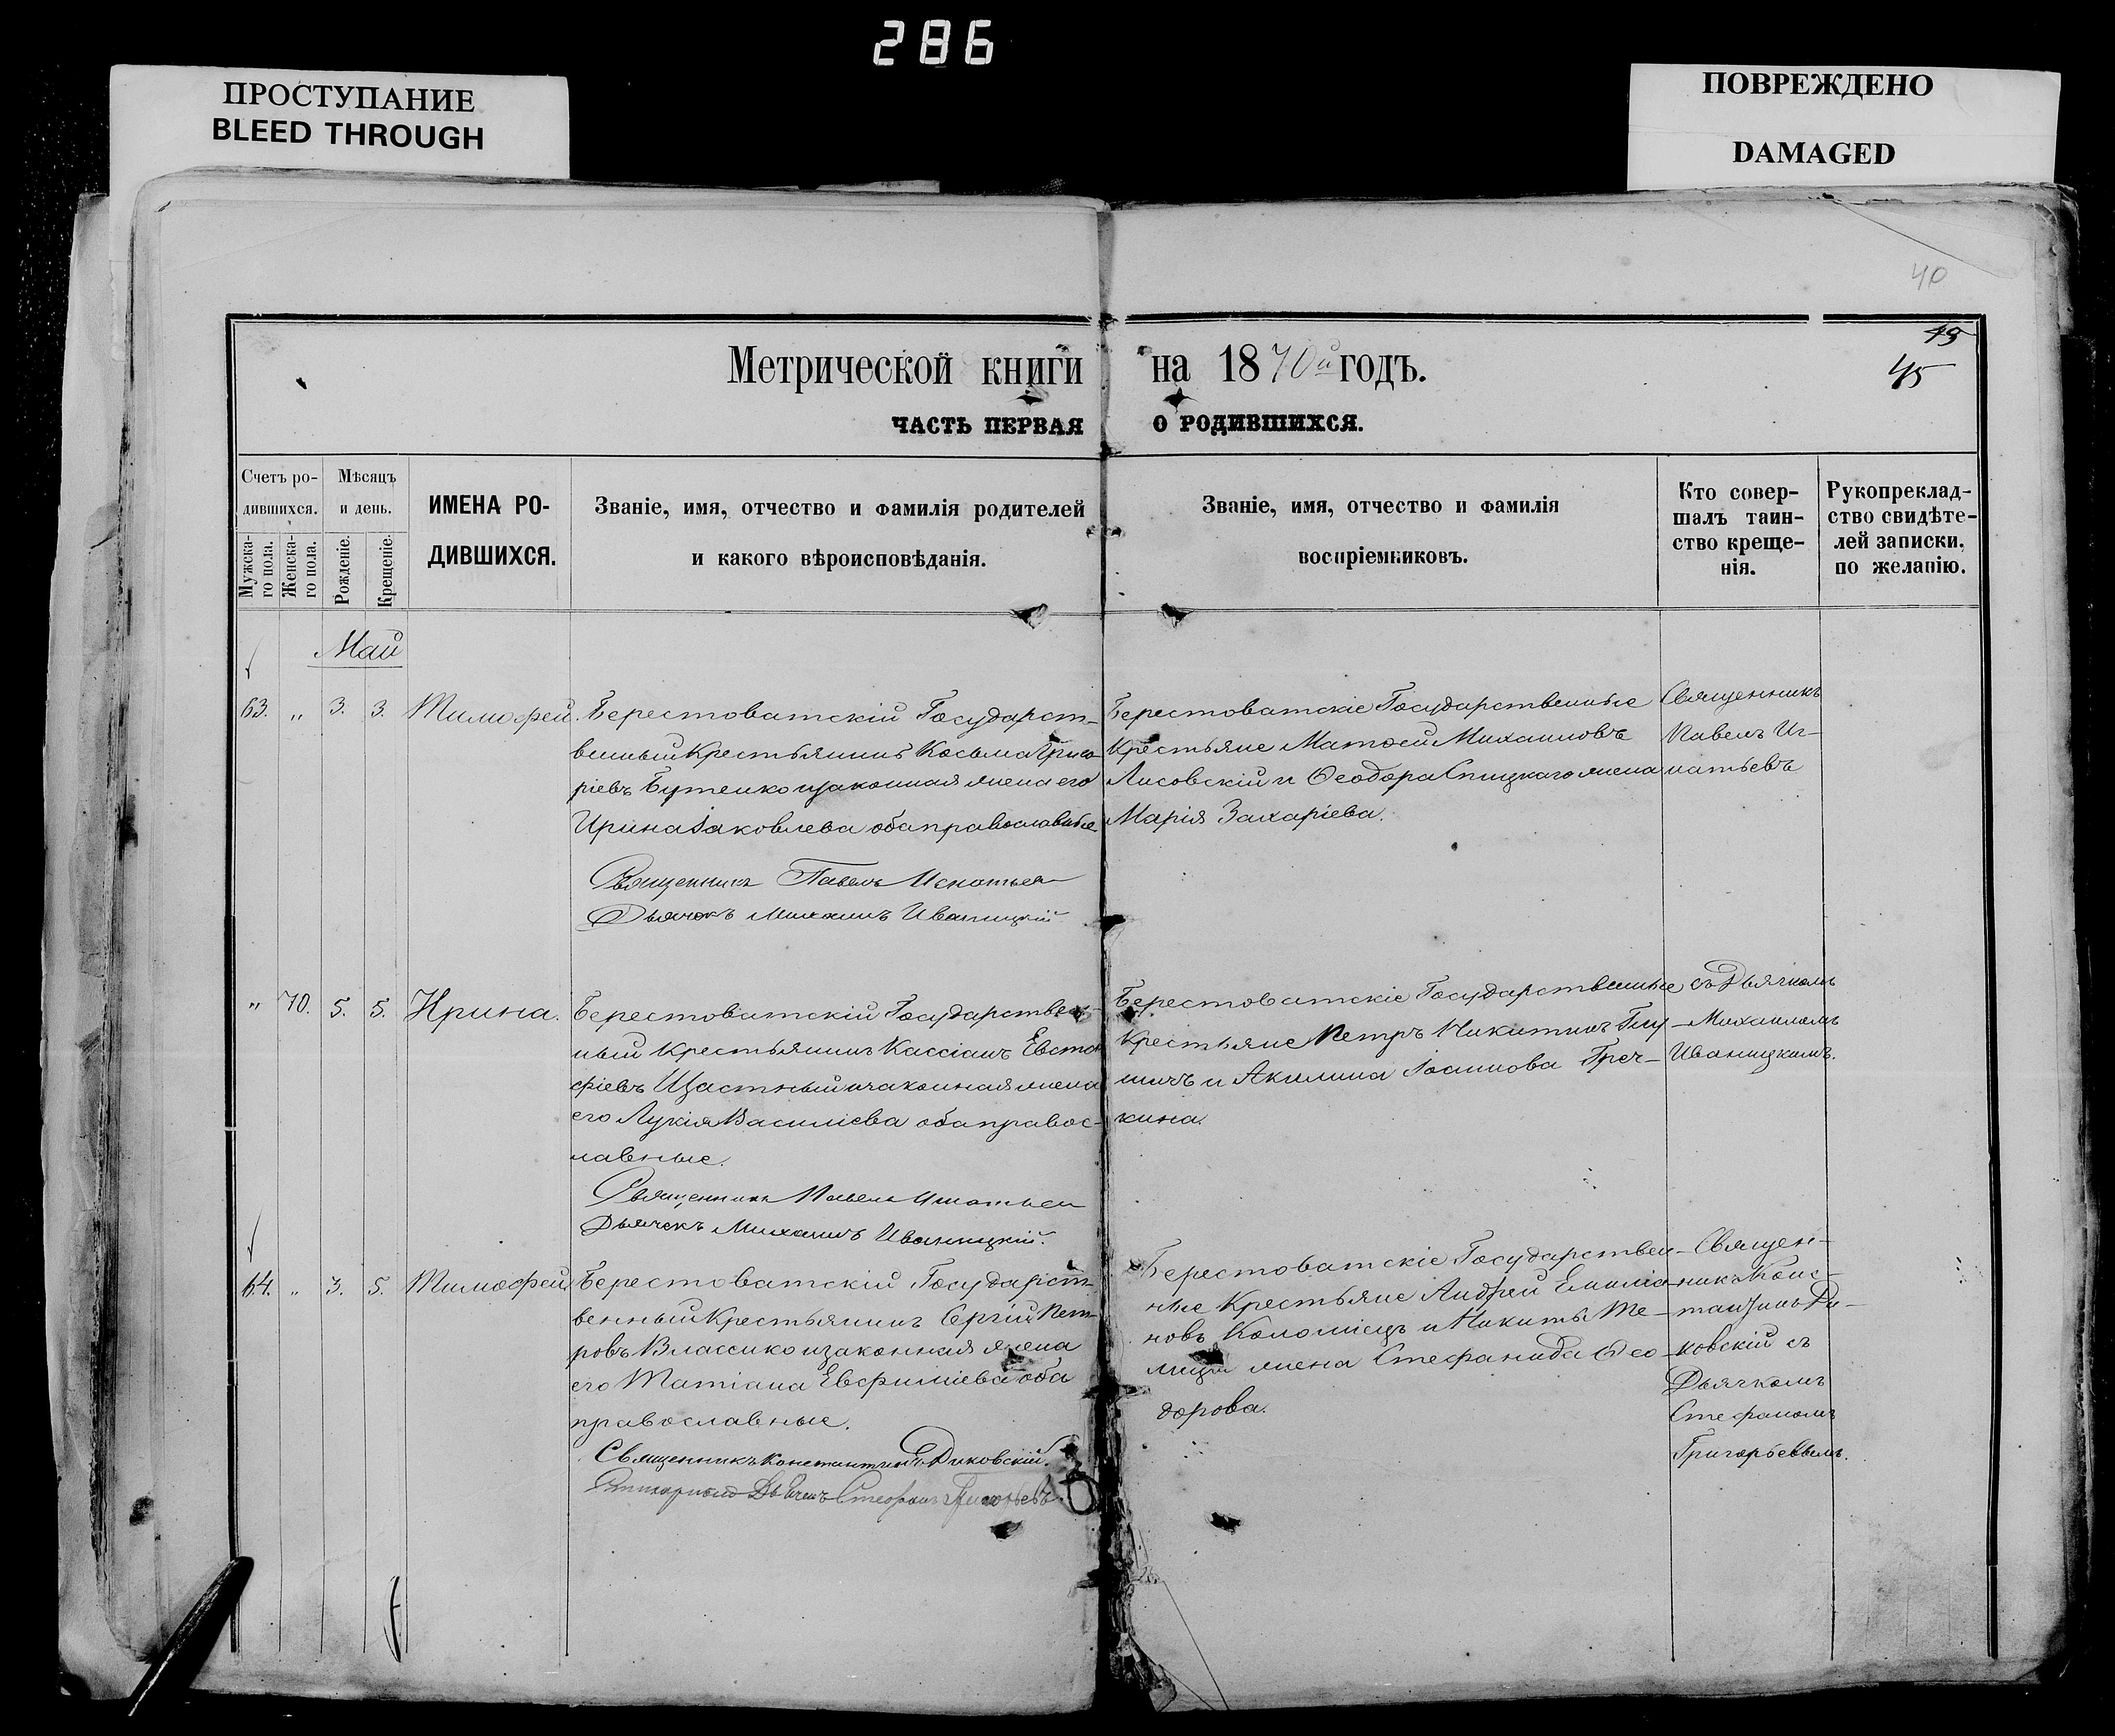 286
ПРОСТУПАНИЕ
BLEED THROUGH
ПОВРЕЖДЕНО
DAMAGED
40
45
Метрической книги на 1870й годъ.
ЧАСТЬ ПЕРВАЯ О РОДИВШИХСЯ.
Счетъ ро-
дившихся.
Мужска-
го пола.
Женска-
го пола.
Мѣсяцъ
и день.
Рожденіе.
Крещеніе.
ИМЕНА РО-
ДИВШИХСЯ.
Званіе, имя, отчество и фамилія родителей
и какого вѣроисповѣданія.
Званіе, имя, отчество и фамилія
воспріемниковъ.
Кто совер-
шалъ таин-
ство креще-
нія.
Рукопреклад-
ство свидѣте-
лей записки,
по желанію.
Май
63. „ 3. 3. Тимофей.
Берестоватскій Государст-
венный Крестьянинъ Косьма Григо
ріевъ Бутенко изаконная жена его
Ирина Іаковлева оба православные
Священникъ Павелъ Игнатьев
Дьячокъ Михаилъ Иваницкій
Берестоватскіе Государственные
Крестьяне Матѳей Михаиловъ
Лисовскій и Ѳеодора Спицкаго жена
Марія Захаріева.
Священникъ
Павелъ Иг-
натьевъ
„ 70. 5. 5. Ирина.
Берестоватскій Государствен-
ный Крестьянинъ Кассіанъ Евста
фіевъ Щастный изаконная жена
его Лукія Василіева оба правос-
лавные.
Священникъ Павелъ Игнатьев
Дьячекъ Михаилъ Иваницкій.
Берестоватскіе Государственные
Крестьяне Петръ Никитинъ
и Акилина Іоаннова Греч-
кина.
съ Дьячкомъ
Михаиломъ
Иваницкимъ.
64. „ 3. 5. Тимофей
Берестоватскій Государст-
венный Крестьянинъ Сергій Пет-
ровъ Власенко изаконная жена
его Татіана Евфиміева оба
православные.
Священникъ Константинъ Диковскій.
Дьячекъ Стефанъ Григорьевъ
Берестоватскіе Государствен-
ные Крестьяне Андрей Емиліа-
новъ Коломіецъ и Никиты
жена Стефанида Ѳео-
дорова.
Священ-
никъ Конс-
тантинъ Ди-
ковскій съ
Дьячкомъ
Стефаномъ
Григорьевымъ.